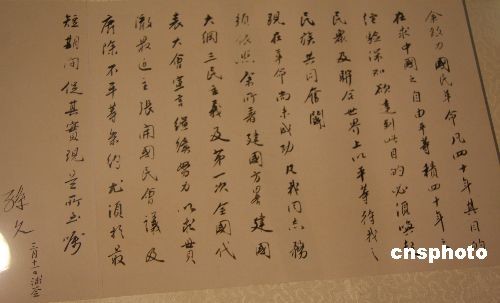 余致力國民革命凡四十年其目的
在求中國之自由平等積四十年之
經驗深知欲達到此目的必須喚起
民衆及聯合世界上以平等待我之
民族共同奮鬪
現在革命尚未成功凡我同志務
須依照余所著建國方畧建國
大綱三民主義及第一次全國代
表大會宣言繼續努力以求貫
澈最近主張開國民會議及
廢除不平等条約尤須於最
短期間促其實現是所至囑
孫文
三月十一日補簽
cnsphoto